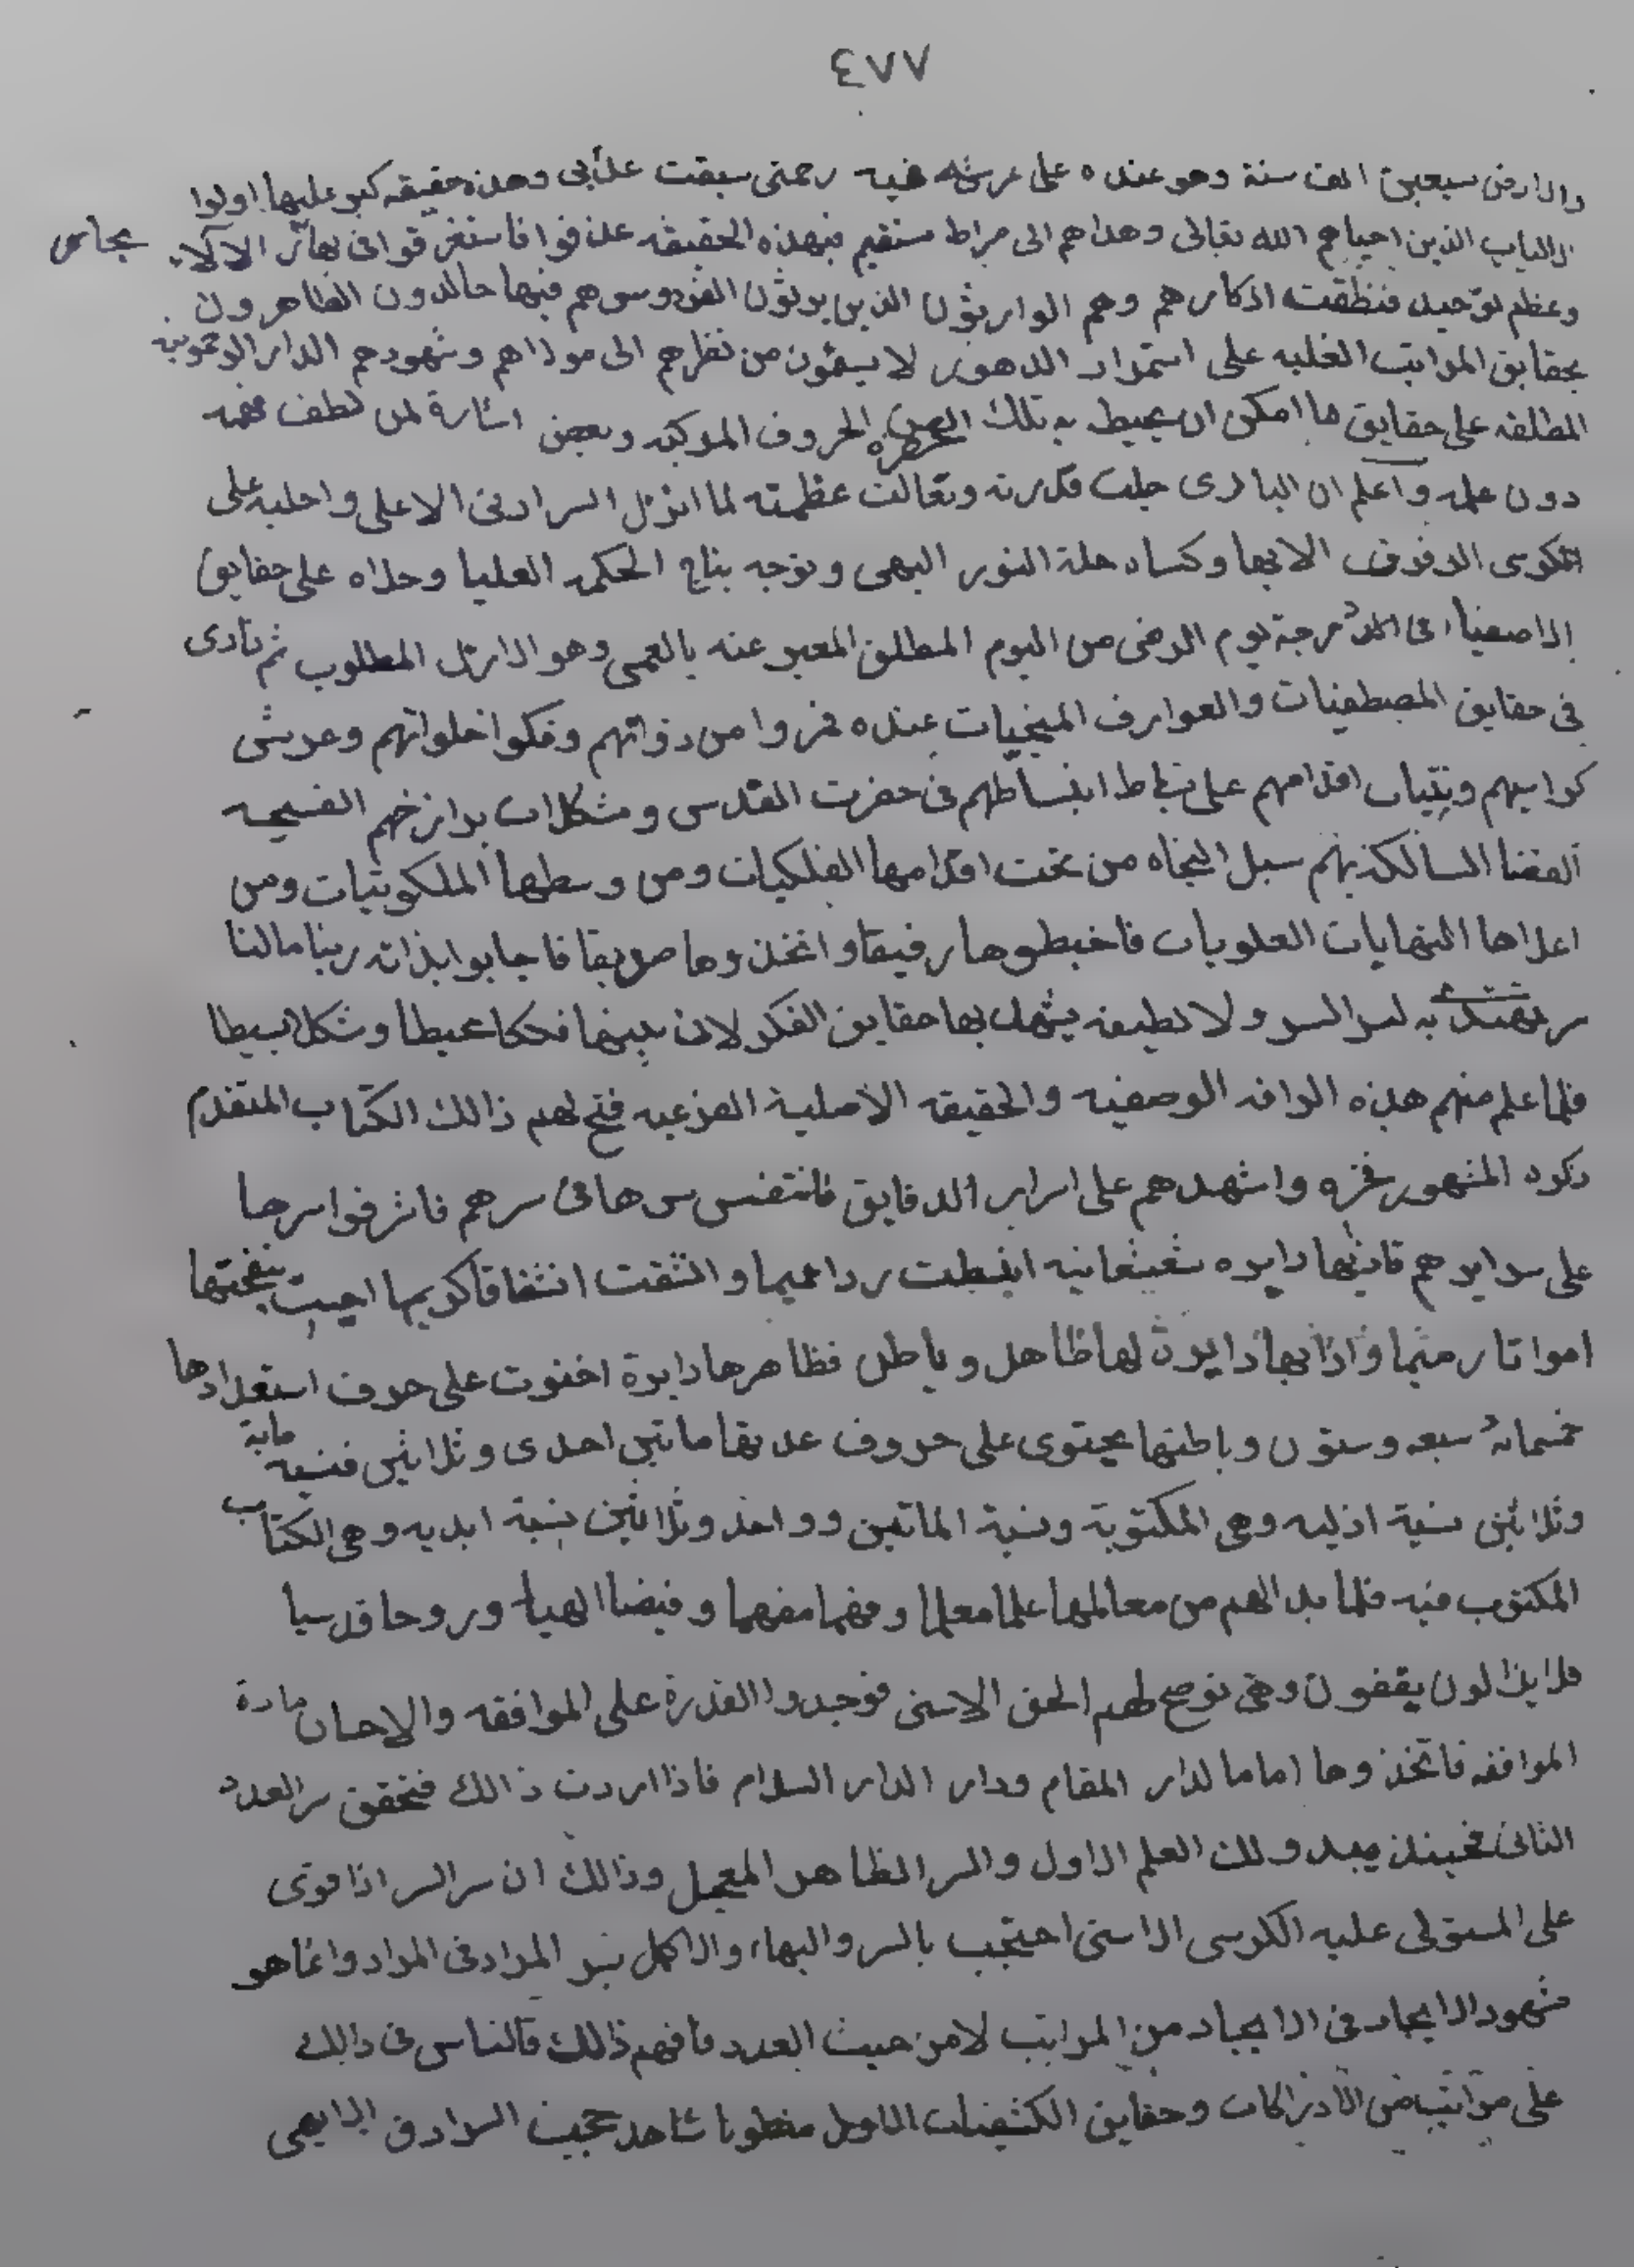 ٨٧٤
والارض سبعين الف سنة وهو عنده على عرشه فيه رحمتى سبقت عذابى وهذه حقيقه كبر عليها اولوا
الالباب الذين احياهم الله تعالى وهداهم الى صراط مستقيم فبهذه الحقيقه عرفوا فاستغرقوا فى بحار الالا
وعظم توحيد فنطقت اذكارهم وهم الوارثون الذين يرثون الفردوس هم فيها خالدون الظاهرون
بحقايق المراتب العليه على استمرار الدهور لا يسمون من نظرهم الى مولاهم وشهودهم الدار الديمومية
المطلقه على حقايق ما امكن ان يحيط به تلك الحروف المركبه وبعض اشارة لمن لطف فهمه
دون علمه واعلم ان البارى جلت قدرته وتعالت عظمته لما انزل السرادق الاعلى واجلسه على
الكرسى الرفرف الابها وكساه حلة النور البهى وتوجه بتاج الحكمه العليا وحلاه على حقايق
الاصفيا فى درجة يوم الرضى من اليوم المطلق المعبر عنه بالعمى وهو الازل المطلوب ثم نادى
فى حقايق المصطفيات والعوارف المنجيات عنده ففروا من ذواتهم وفكوا خلواتهم وعرش
كراسيهم وثبات اقدامهم على بساط انبساطهم فى حضرت القدسى ومشكلات برازخهم الفسيحه
الفضا السالك بهم سبل النجاه من تحت اقدامها الفلكيات ومن وسطها الملكوتيات ومن
اعلاها النهايات العلويات فاغبطوها رفيقا واتخذوها صديقا فاجابوا بذاته ربنا مالنا
سر نهتدى به لسر السر ولا لطيفه يشهد بها حقايق الفكر لان بينها فحكا محيطا وشكلا بسيطا
فلما علم منهم هذه الرافه الوصفيه والحقيقه الاصلية الفرعيه فتح لهم ذالك الكتاب المتقدم
ذكره المشهور فخره واشهدهم على اسرار الدقايق فانتفس سرها فى سرهم فاشرفوا سرها
على سرايرهم فاذنها دايره شعشعانيه انبسطت رداعيما وانشقت انشقاقا كريما احيت بنفختها
امواتا رميما واذا بها دايرة لها ظاهر وباطن فظاهرها دايرة احتوت على حروف استعدادها
خمسمائة سبعه وستون وباطنها يحتوى على حروف عددها ماتين احدى وثلاثين فنسبه ماية
وثلاثين نسبة ازليه وهى المكتوبة ونسبة الماتين وواحد وثلاثين نسبة ابديه وهى الكتاب
المكتوب فيه فلما بدا لهم من معالمها علما معلما وفهما مفهما وفيضا الهيا وروحا قدسيا
فلا يزالون يقفون وهى توضح لهم الحق الاسنى فوجدوا القدرة على الموافقه والاحسان مادة
الموافقه فاتخذوها اماما لدار المقام ودار الدار السلام فاذا اردت ذالك فتحقق سر العدد
الثانى فحينئذ يبدو لك العلم الاول والسر الظاهر المعجل وذالك ان سر السر اذا قوى
على المستولى عليه الكرسى الاسنى احتجب بالسر والبهاء والاكمل بسر المراد فى المراد وانما هو
شهود الايجاد فى الايجاد من المراتب لامن حيث العدد فافهم ذلك فالناس فى ذالك
على مراتب فى الادراكات وحقايق الكشفيات الاول مخطوبا شاهد عجيب السرادق الابهى